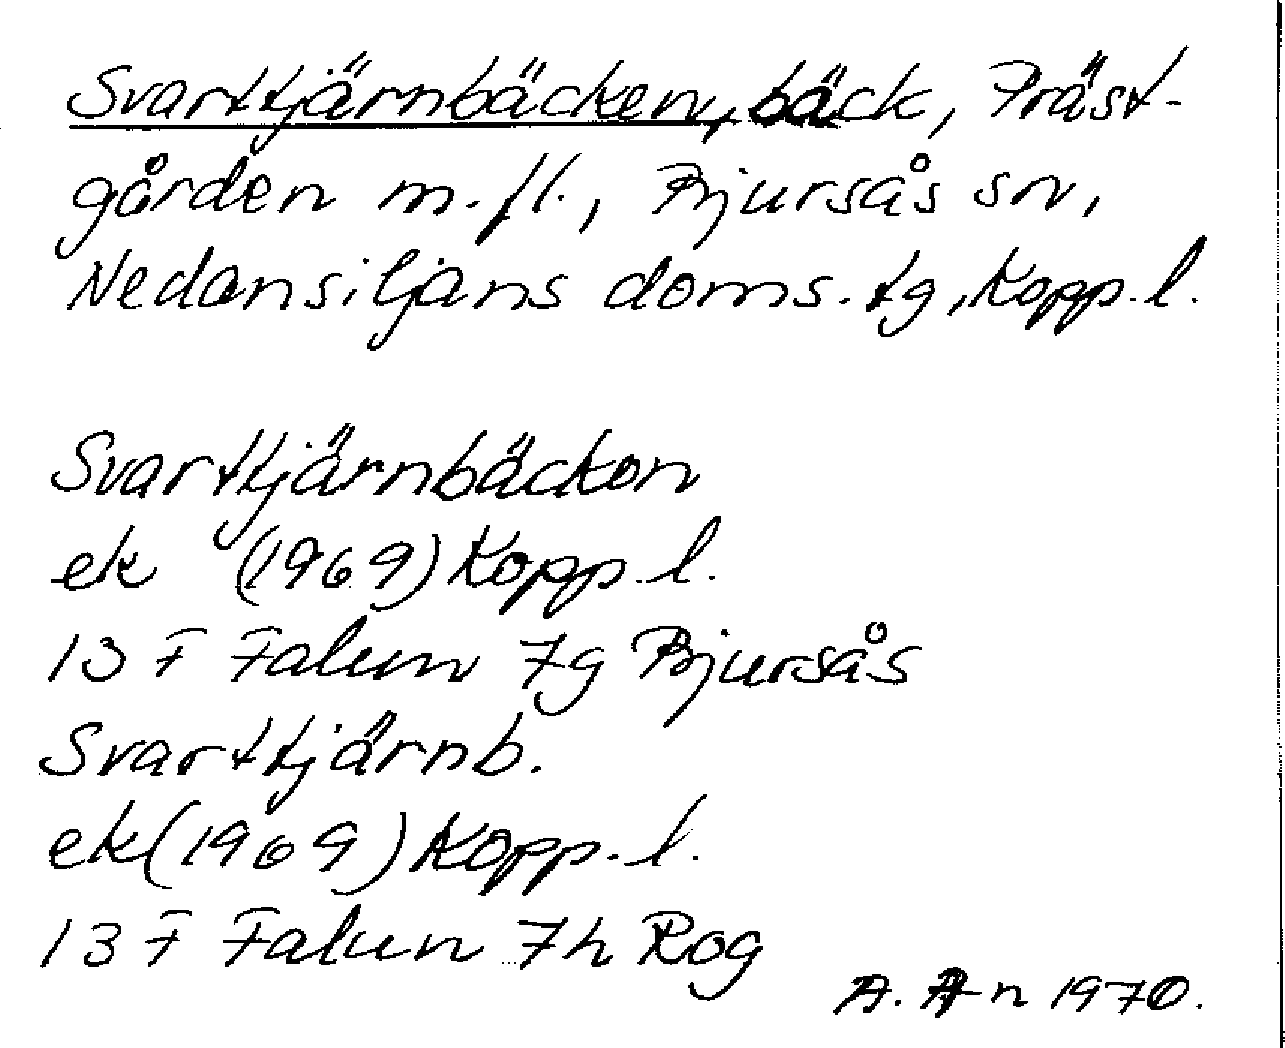 Svarttjärnbäcken, bäck, Präst-
gården m.fl., Bjursås sn,
Nedansiljans doms. tg, Kopp. l.
Svarttjärnbäcken
ek (1969) Kopp. l.
13 F Falun 7g Bjursås
Svarttjärnb.
ek (1969) Kopp. l.
13 F Falun 7h Rog
A. A-n 1970.